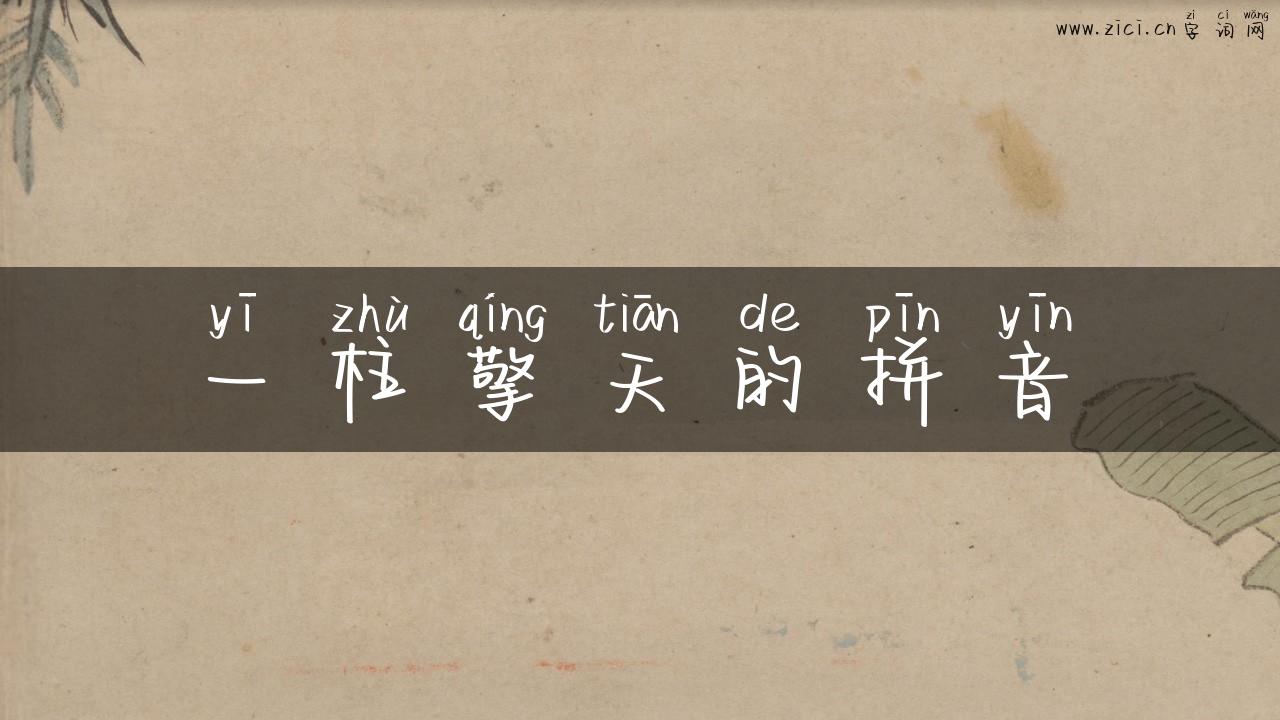 zì cí wǎng
www.zici.cn 字词网
yī zhù qíng tiān de pīn yīn
一柱擎天的拼音